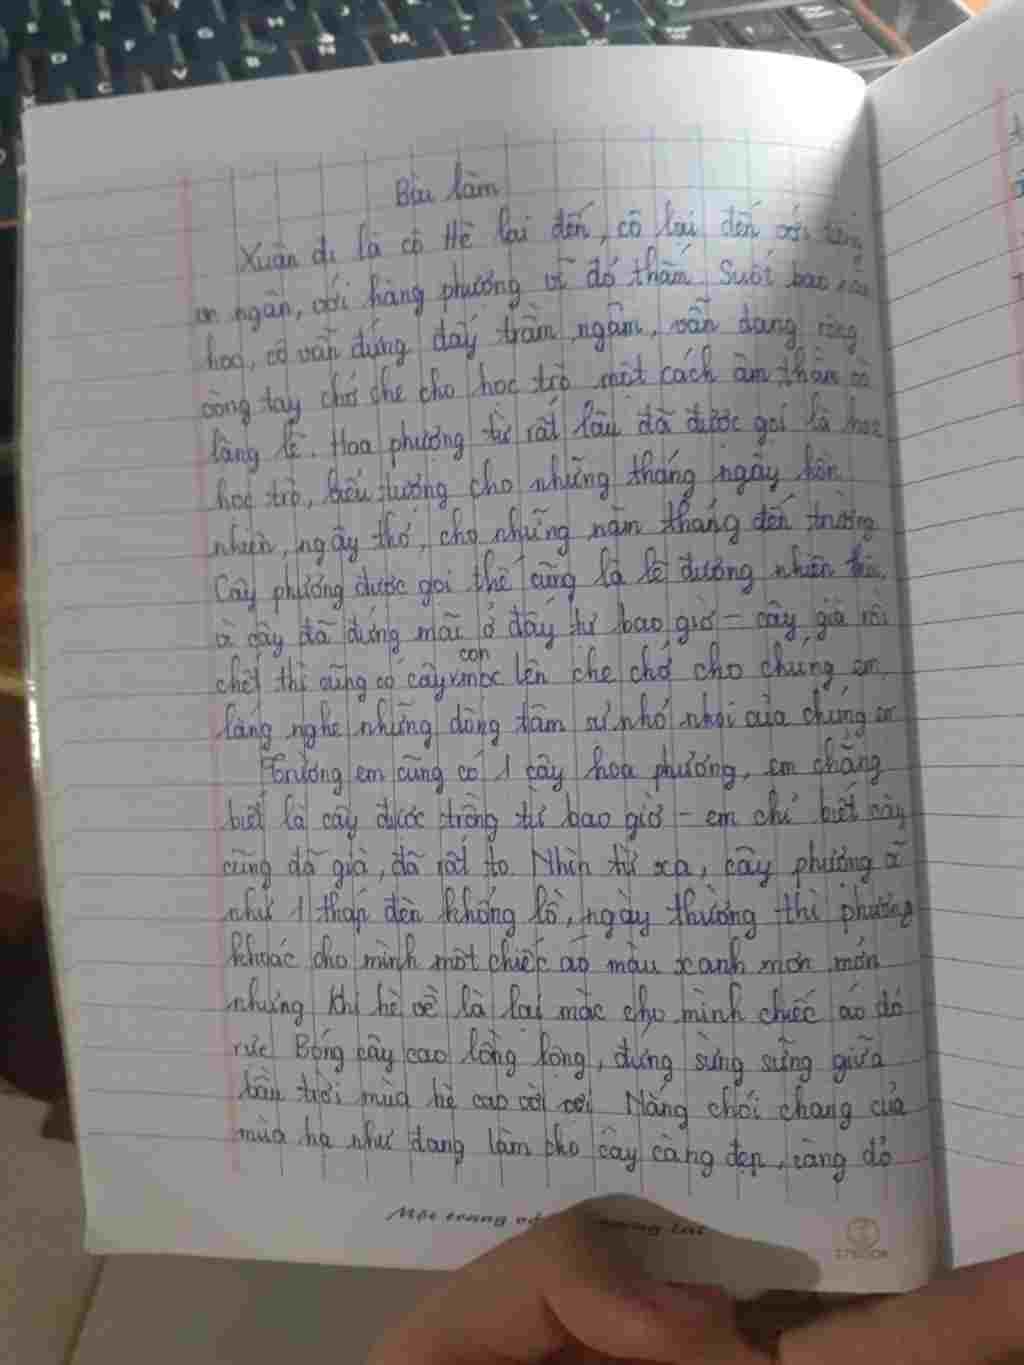 Bài làm
Xuân đi là cô Hè lại đến, cô lại đến với
ngần, với hàng phượng vĩ đỏ thắm. Suốt bao
hoa, cô vẫn đứng đấy trầm ngâm, vẫn dang rộng
vòng tay chở che cho học trò một cách âm thầm và
lặng lẽ. Hoa phượng từ rất lâu đã được gọi là hoa
học trò, biểu tượng cho những tháng ngày hồn
nhiên, ngây thơ, cho những năm tháng đến trường
Cây phượng được gọi thế cũng là lẽ đương nhiên thôi,
vì cây đã đứng mãi ở đấy từ bao giờ - cây già rồi
chết thì cũng có cây con mọc lên che chở cho chúng em,
lắng nghe những dòng tâm sự nhỏ nhoi của chúng em
Trường em cũng có 1 cây hoa phượng, em chẳng
biết là cây được trồng từ bao giờ - em chỉ biết cây
cũng đã già, đã rất to. Nhìn từ xa, cây phượng
như 1 tháp đèn khổng lồ, ngày thường thì phượng
khoác cho mình một chiếc áo màu xanh mơn mởn
nhưng khi hè về là lại mặc cho mình chiếc áo đỏ
rực Bóng cây cao lồng lộng, đứng sừng sững giữa
bầu trời mùa hè cao vời vợi Nắng chói chang của
mùa hạ như đang làm cho cây càng đẹp, càng đỏ
Một trang